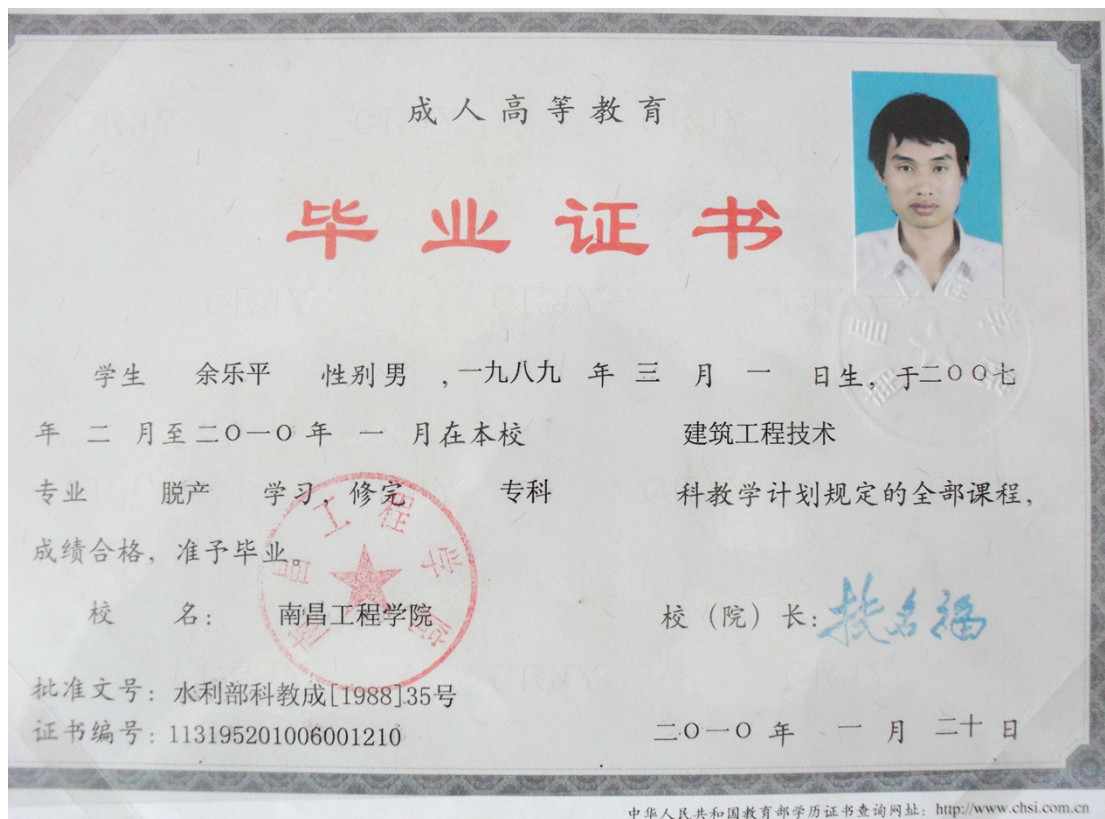 成人高等教育
毕业证书
学生 余乐平 性别 男 ,一九八九 年 三 月 一 日生，于二〇〇七
年 二 月至二〇一〇年 一 月在本校 建筑工程技术
专业 脱产 学习，修完 专科 科教学计划规定的全部课程，
成绩合格，准予毕业。
校 名： 南昌工程学院 校（院）长：
南昌工程学院
批准文号：水利部科教成[1988]35号
证书编号：113195201006001210 二〇一〇年 一 月 二十 日
中华人民共和国教育部学历证书查询网址：http://www.chsi.com.cn